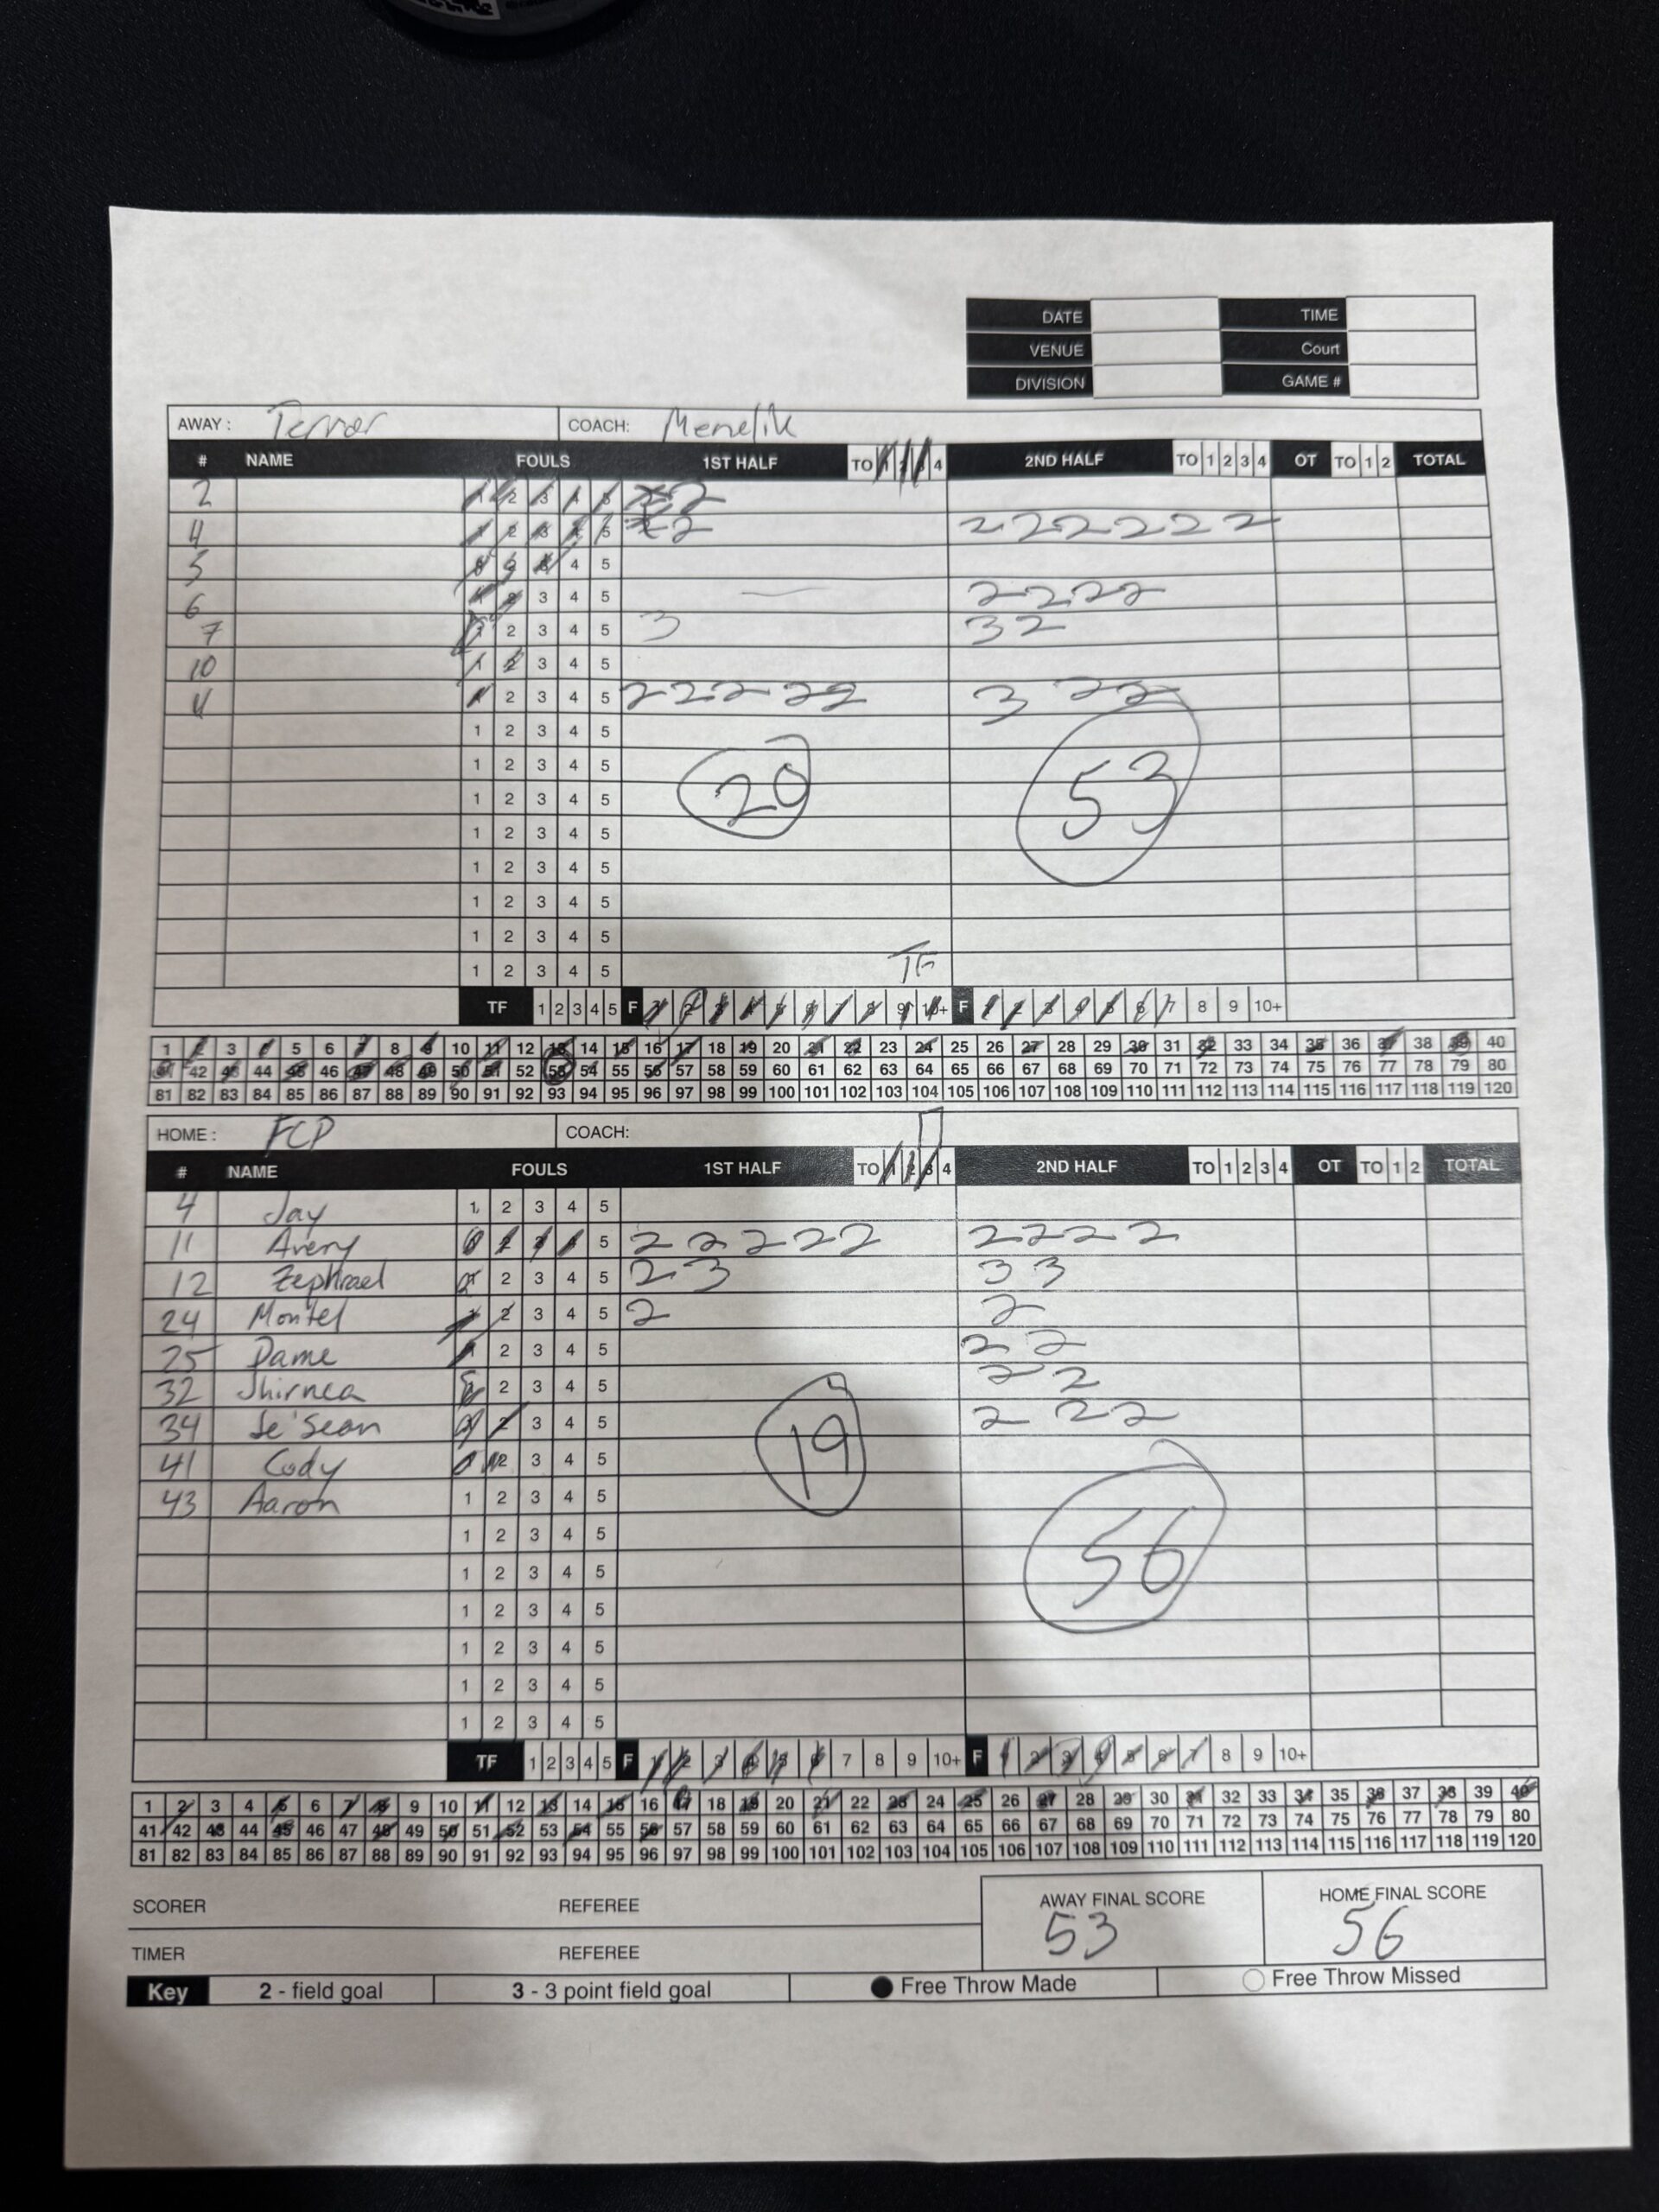 DATE TIME
VENUE Court
DIVISION GAME #
AWAY : Terror COACH: Menelik
# NAME FOULS 1ST HALF TO 1 2 3 4 2ND HALF TO 1 2 3 4 OT TO 1 2 TOTAL
2 1 2 3 4 5 2
4 1 2 3 4 5 2 2 2 2 2 2 2
5 1 2 3 4 5
6 1 2 3 4 5 2 2 2 2
7 1 2 3 4 5 3 3 2
10 1 2 3 4 5
1 2 3 4 5 2 2 2 2 2 3 2 2
1 2 3 4 5
1 2 3 4 5
1 2 3 4 5 20 53
1 2 3 4 5
1 2 3 4 5
1 2 3 4 5
1 2 3 4 5
1 2 3 4 5 TF
TF 1 2 3 4 5 F 1 2 3 4 5 6 7 8 9 10+ F 1 2 3 4 5 6 7 8 9 10+
1 2 3 4 5 6 7 8 9 10 11 12 13 14 15 16 17 18 19 20 21 22 23 24 25 26 27 28 29 30 31 32 33 34 35 36 37 38 39 40
41 42 43 44 45 46 47 48 49 50 51 52 53 54 55 56 57 58 59 60 61 62 63 64 65 66 67 68 69 70 71 72 73 74 75 76 77 78 79 80
81 82 83 84 85 86 87 88 89 90 91 92 93 94 95 96 97 98 99 100 101 102 103 104 105 106 107 108 109 110 111 112 113 114 115 116 117 118 119 120
HOME : FCP COACH:
# NAME FOULS 1ST HALF TO 1 2 3 4 2ND HALF TO 1 2 3 4 OT TO 1 2 TOTAL
4 Jay 1 2 3 4 5
11 Avery 1 2 3 4 5 2 2 2 2 2 2 2 2 2
12 Zephrael 1 2 3 4 5 2 3 3 3
24 Montel 1 2 3 4 5 2 2
25 Dame 1 2 3 4 5 2 2
32 Jhirnea 1 2 3 4 5 2 2
34 Se'Sean 1 2 3 4 5 19 2 2 2
41 Cody 1 2 3 4 5
43 Aaron 1 2 3 4 5
1 2 3 4 5
1 2 3 4 5 56
1 2 3 4 5
1 2 3 4 5
1 2 3 4 5
1 2 3 4 5
TF 1 2 3 4 5 F 1 2 3 4 5 6 7 8 9 10+ F 1 2 3 4 5 6 7 8 9 10+
1 2 3 4 5 6 7 8 9 10 11 12 13 14 15 16 17 18 19 20 21 22 23 24 25 26 27 28 29 30 31 32 33 34 35 36 37 38 39 40
41 42 43 44 45 46 47 48 49 50 51 52 53 54 55 56 57 58 59 60 61 62 63 64 65 66 67 68 69 70 71 72 73 74 75 76 77 78 79 80
81 82 83 84 85 86 87 88 89 90 91 92 93 94 95 96 97 98 99 100 101 102 103 104 105 106 107 108 109 110 111 112 113 114 115 116 117 118 119 120
SCORER REFEREE AWAY FINAL SCORE HOME FINAL SCORE
53 56
TIMER REFEREE
Key 2 - field goal 3 - 3 point field goal Free Throw Made Free Throw Missed